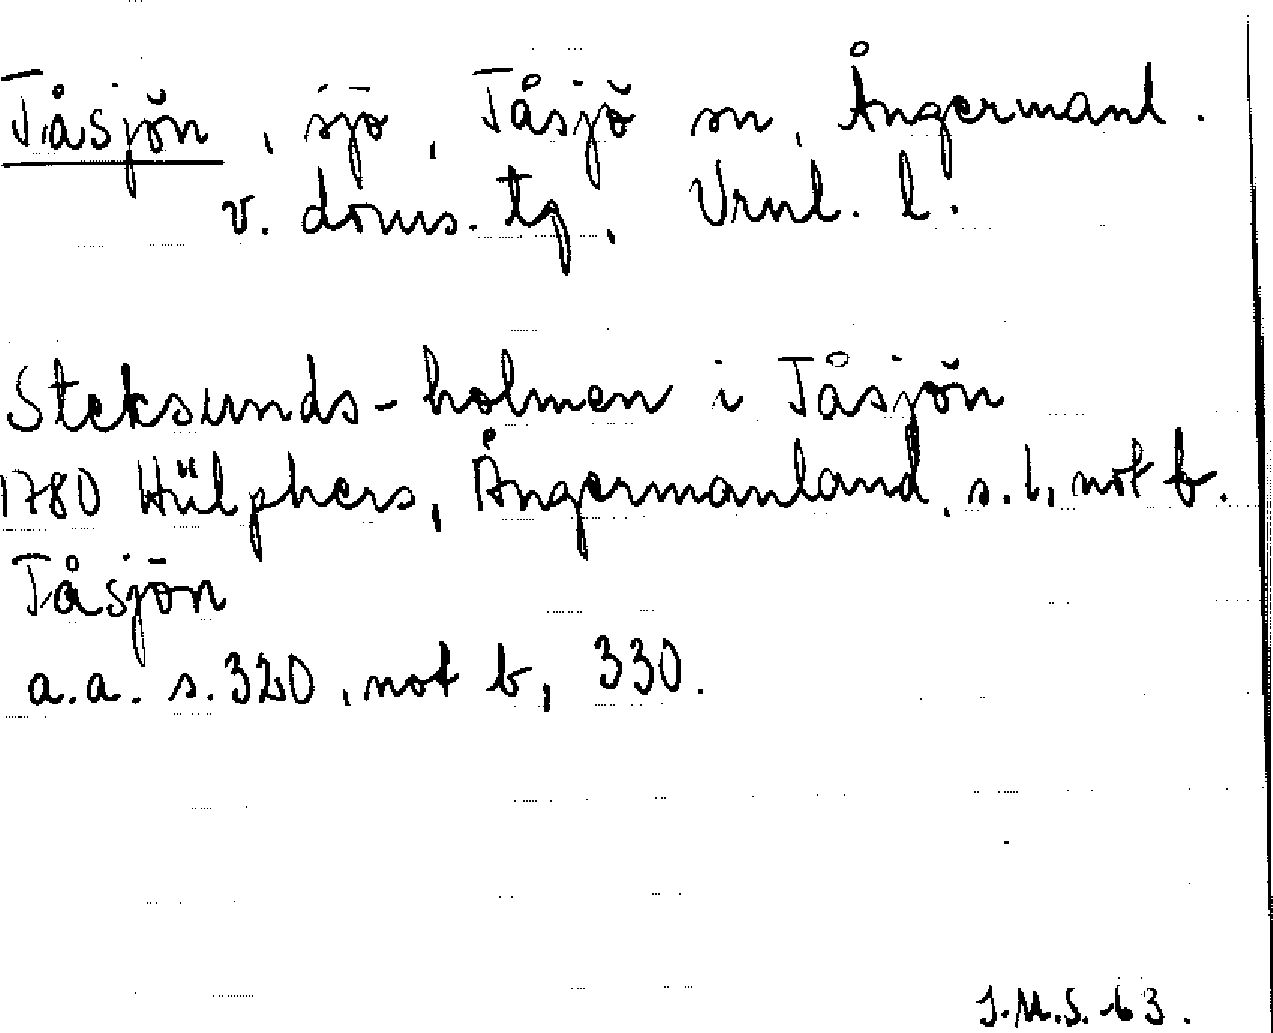 Tåsjön, sjö, Tåsjö sn, Ångermanl.
v. doms. tg, Vrnl. l.
Steksunds-holmen i Tåsjön
1780 Hülphers, Ångermanland, s. 1, not b.
Tåsjön
a.a. s. 320, not b, 330.
J.M.S. 63.